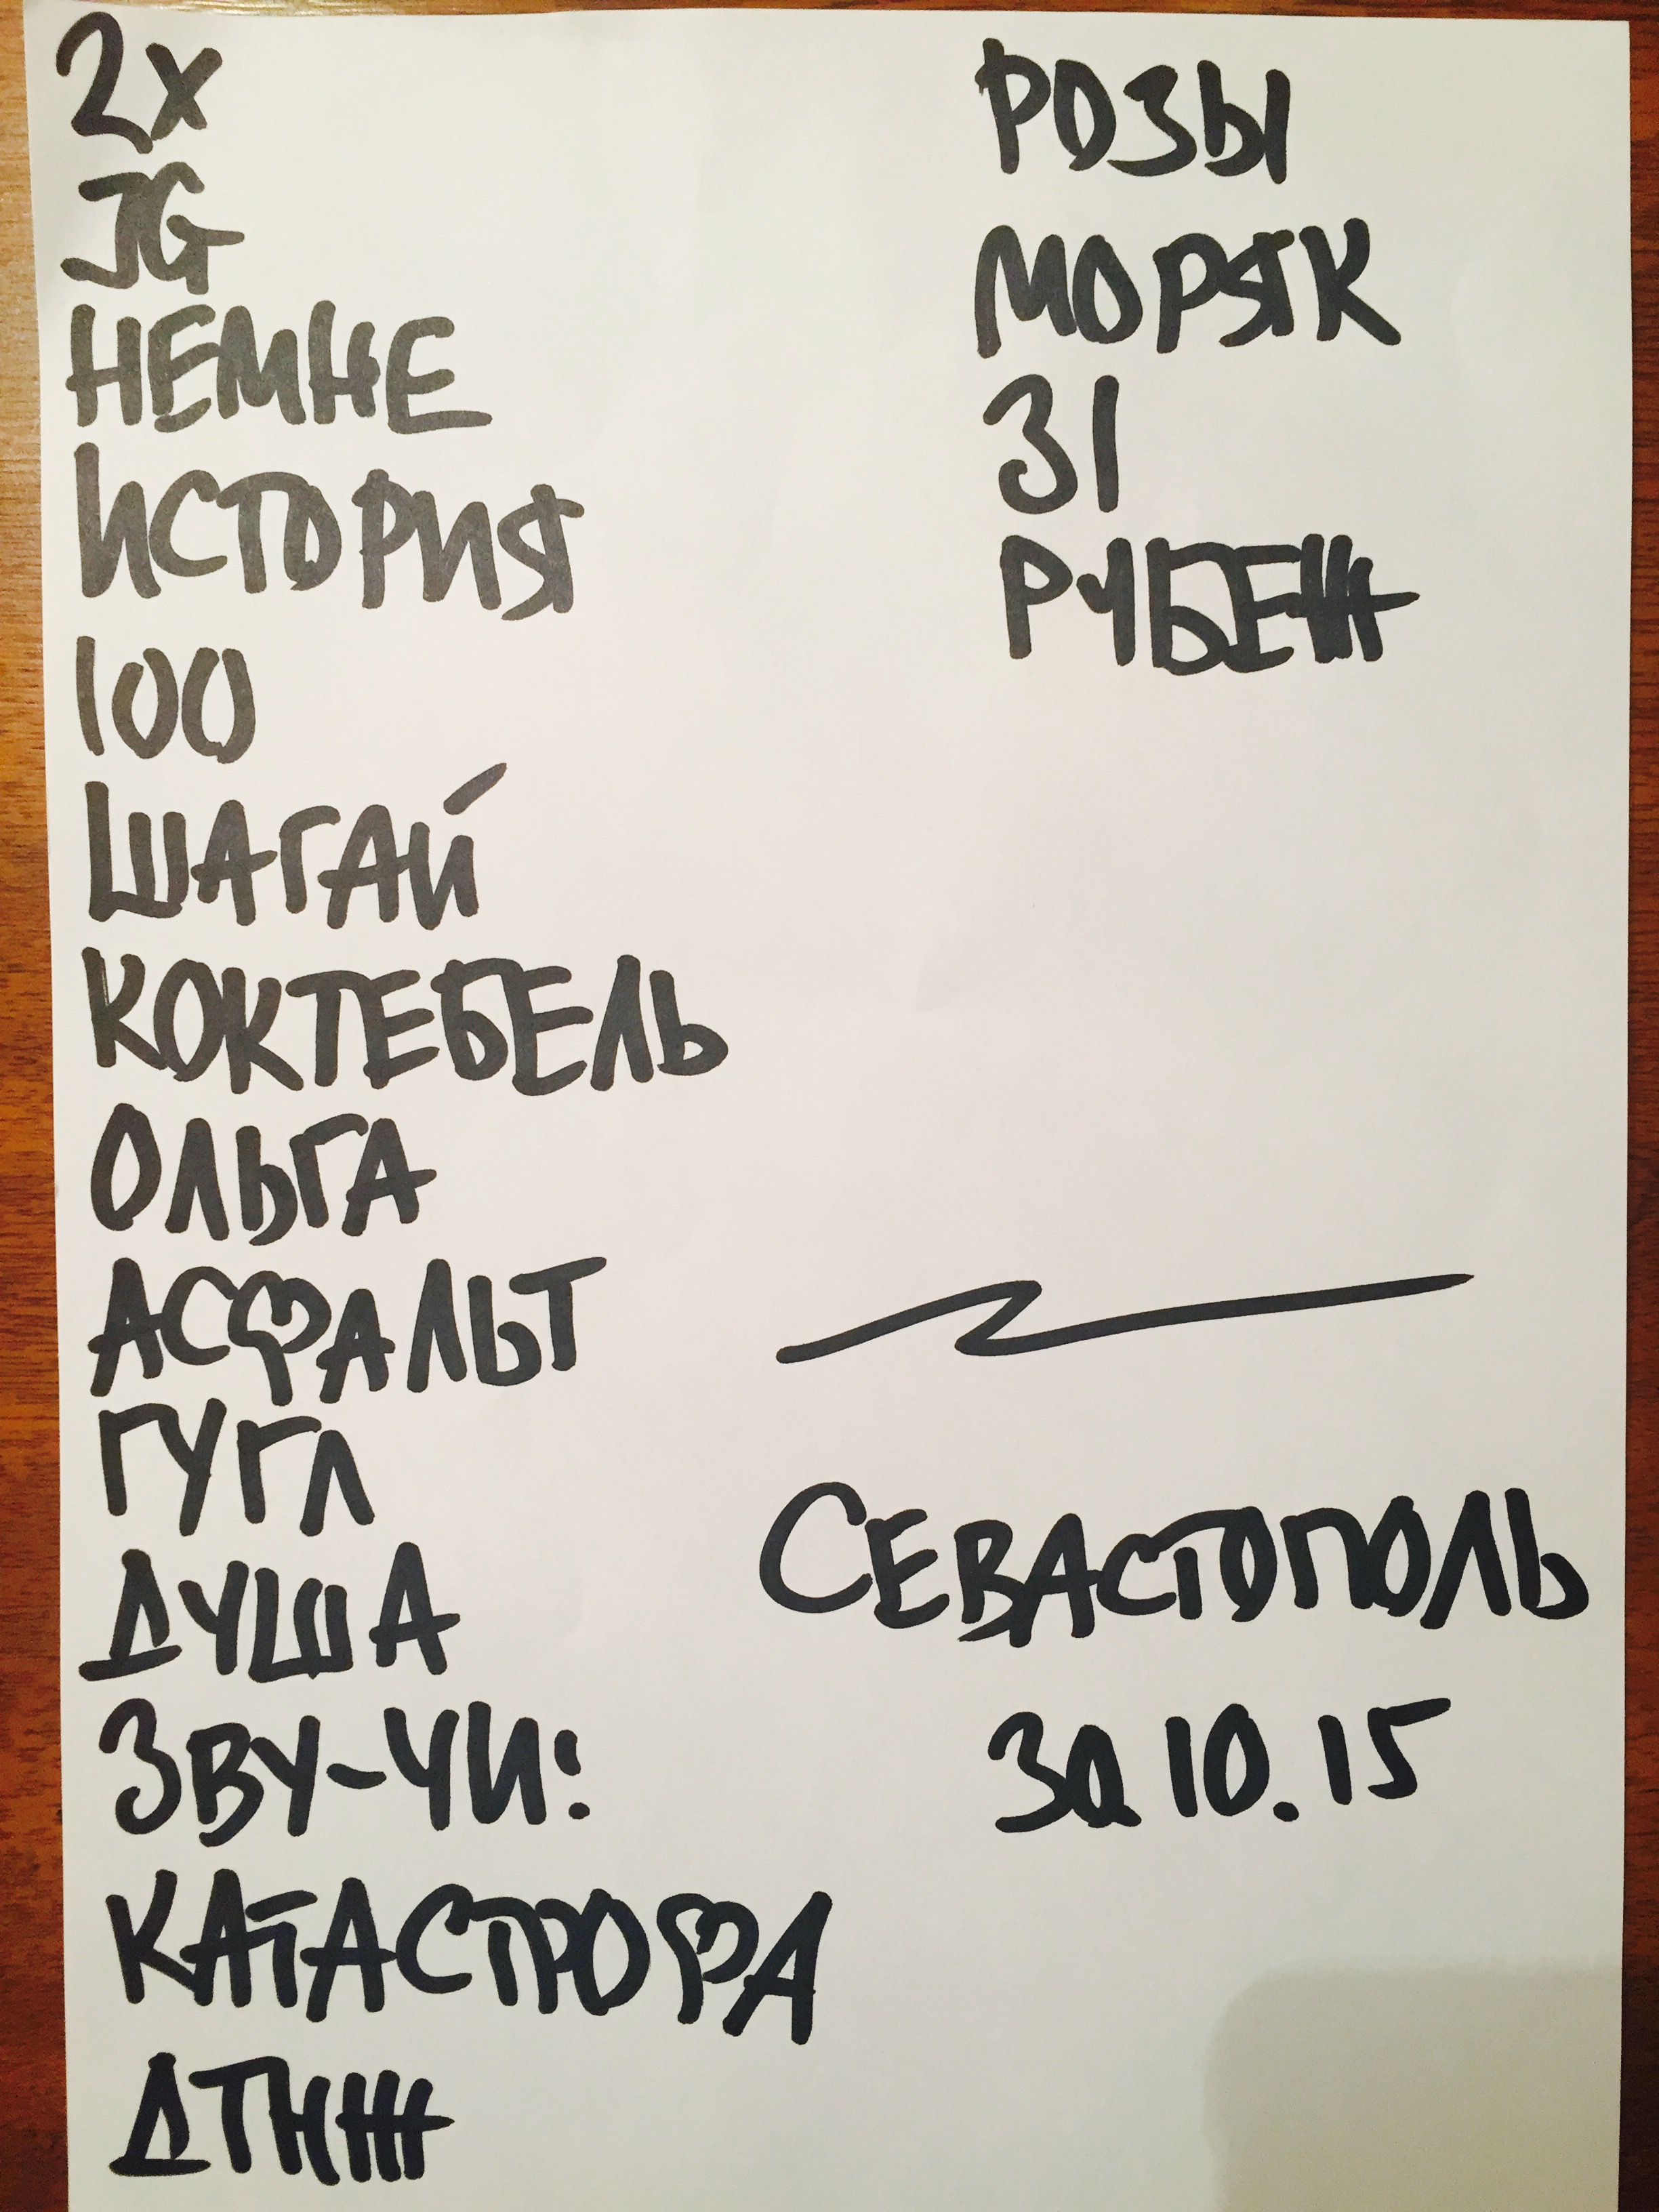 2X
JG
НЕМНЕ
ИСТОРИЯ
100
ШАГАЙ
КОКТЕБЕЛЬ
ОЛЬГА
АСФАЛЬТ
ГУГЛ
ДУША
ЗВУ-ЧИ:
КАТАСТРОФА
ДТНЖ
РОЗЫ
МОРЯК
31
РУБЕЖ
СЕВАСТОПОЛЬ
30.10.15